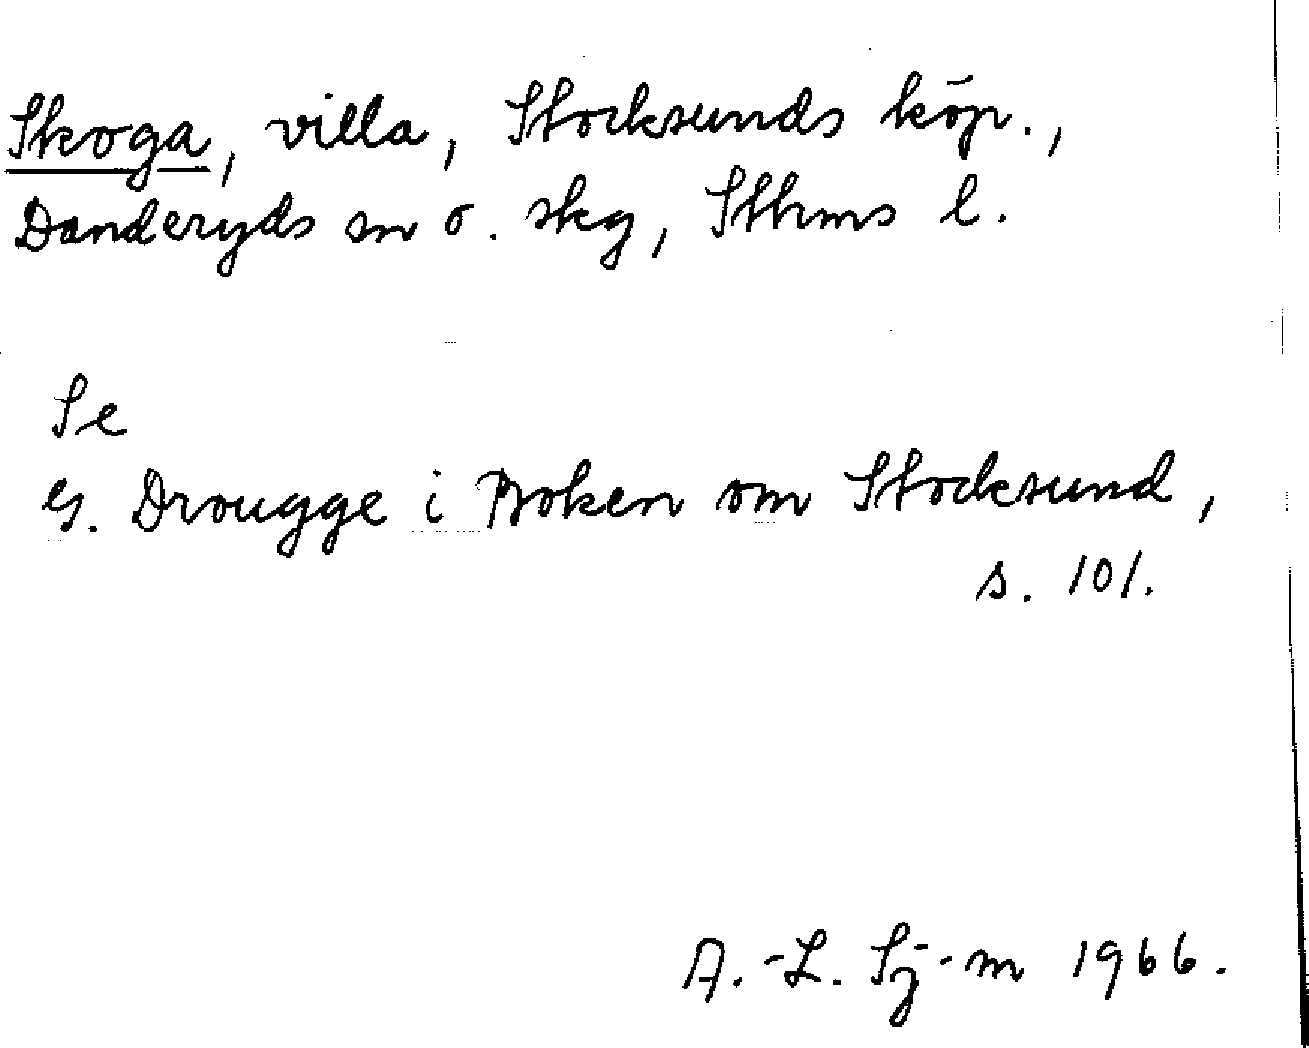 Skoga, villa, Stocksunds köp.,
Danderyds sn o. skg, Sthms l.
Se
G. Drougge i Boken om Stocksund,
s. 101.
A.-L. Sj-m 1966.